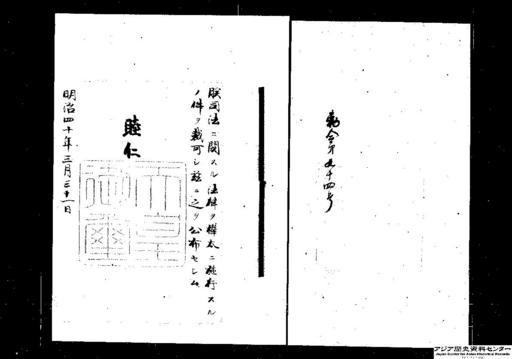 勅令第九十四号
朕司法ニ関スル法律ヲ樺太ニ施行スル
ノ件ヲ裁可シ茲ニ之ヲ公布セシム
睦仁
天皇御璽
明治四十年三月三十一日
アジア歴史資料センター
Japan Center for Asian Historical Records